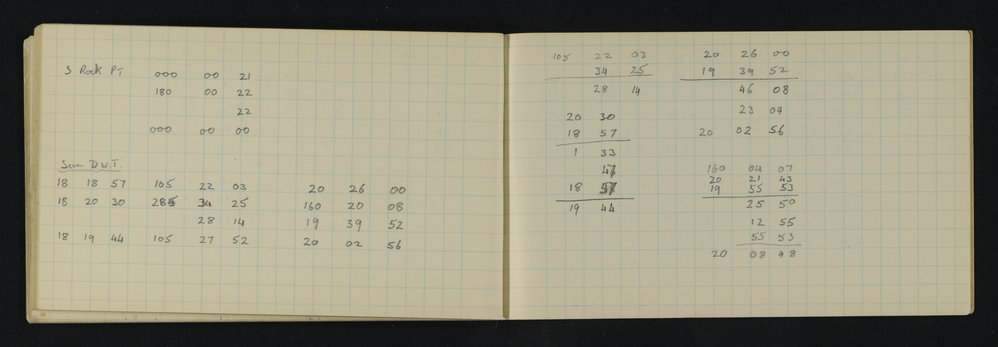 S Rock PT 000 00 21
180 00 22
22
000 00 00
Sun D.W.T.
18 18 57 105 22 03 20 26 00
18 20 30 285 34 25 160 20 08
28 14 19 39 52
18 19 44 105 27 52 20 02 56
105 22 03
34 25
28 14
20 30
18 57
1 33
47
18 57
19 44
20 26 00
19 39 52
46 08
23 04
20 02 56
160 04 07
20 21 43
19 55 53
25 50
12 55
55 53
20 08 48